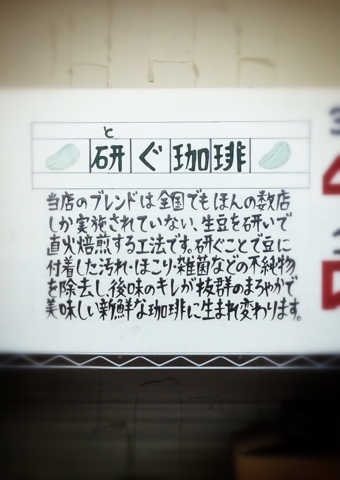 と
研ぐ珈琲
当店のブレンドは全国でもほんの数店
しか実施されていない、生豆を研いで
直火焙煎する工法です。研ぐことで豆に
付着した汚れ・ほこり・雑菌などの不純物
を除去し後味のキレが抜群のまろやかで
美味しい新鮮な珈琲に生まれ変わります。